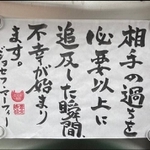 相手の過ちを
必要以上に
追及した瞬間、
不幸が始まり
ます。
ジョセフ・マーフィー